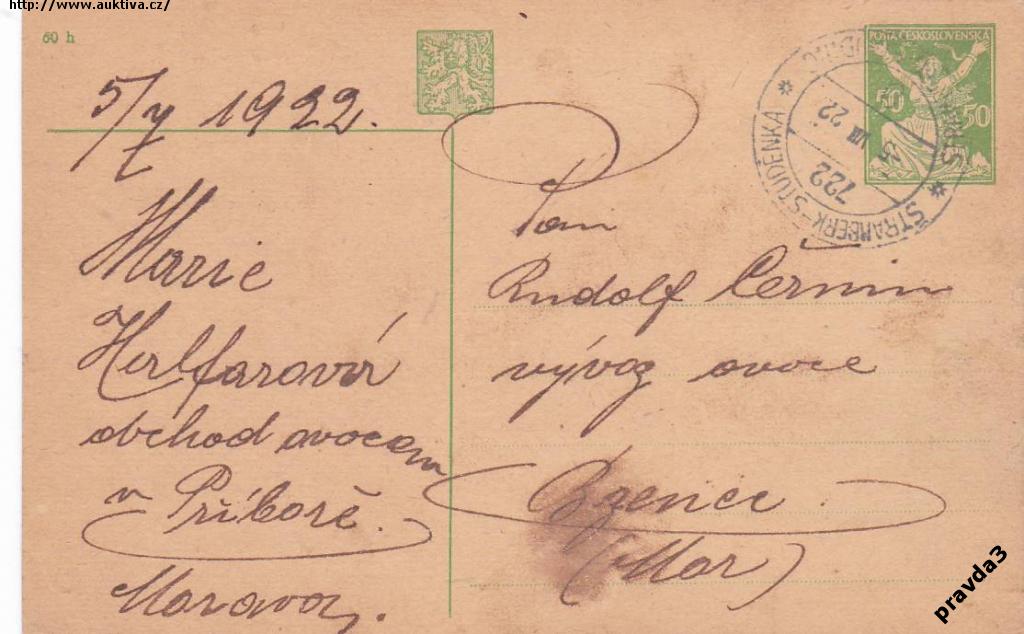 http://www.auktiva.cz/
60 h
5/7 1922.
Marie
Herlfarová
obchod ovocem
v Příboře.
Morava.
POŠTA ČESKOSLOVENSKÁ
50 50
ŠTRAMBERK-STUDÉNKA
722
5 VII 22
Pan
Rudolf Černín
vývoz ovoce
Bzenec.
(Mor)
pravda3